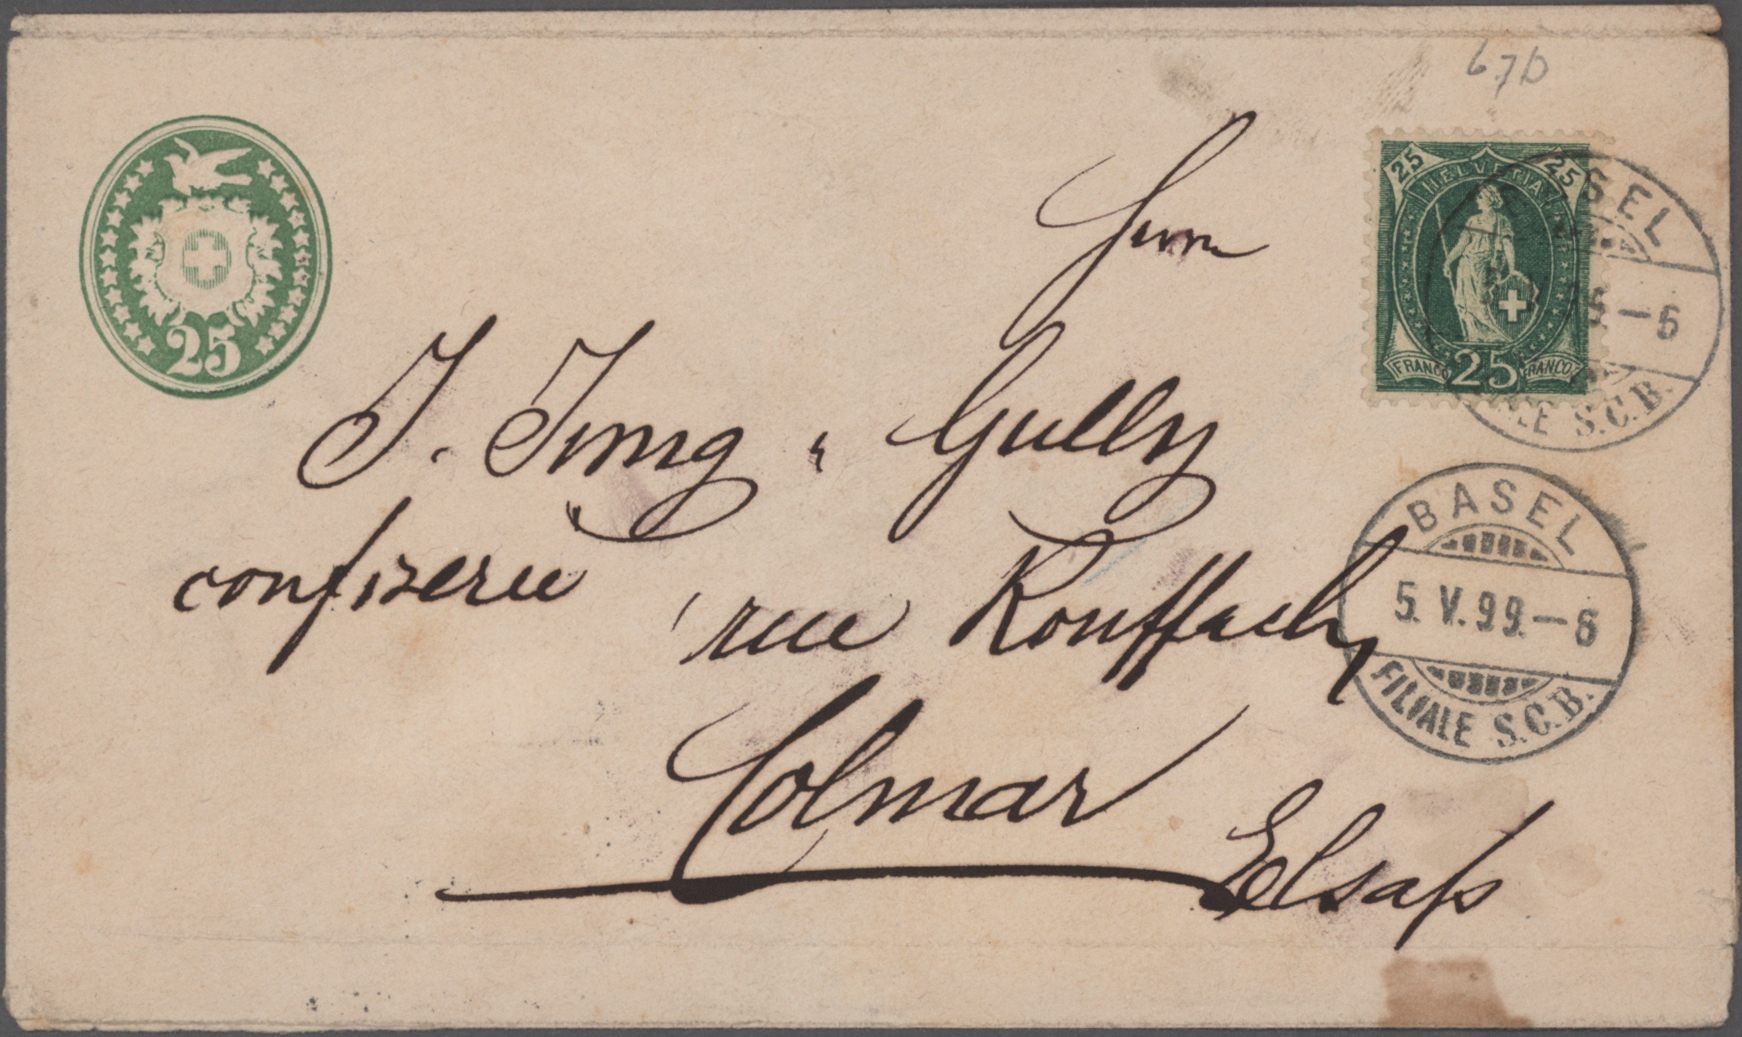 67b
25
25 25
HELVETIA
FRANCO 25 FRANCO
BASEL
-6
FILIALE S.C.B.
Herrn
J. Jung & Gully
confiserie rue Rouffach
Colmar
Elsaß
BASEL
5. V. 99.-6
FILIALE S.C.B.